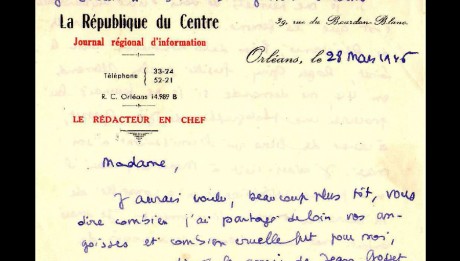 La République du Centre
29, rue du Bourdon Blanc
Journal régional d'information
Orléans, le 28 Mars 1945
Téléphone { 33-24
52-21
R. C. Orléans 14.989 B
LE RÉDACTEUR EN CHEF
Madame,
J'aurais voulu, beaucoup plus tôt, vous
dire combien j'ai partagé de loin vos an-
goisses et combien cruelle fut pour moi,
de Jean